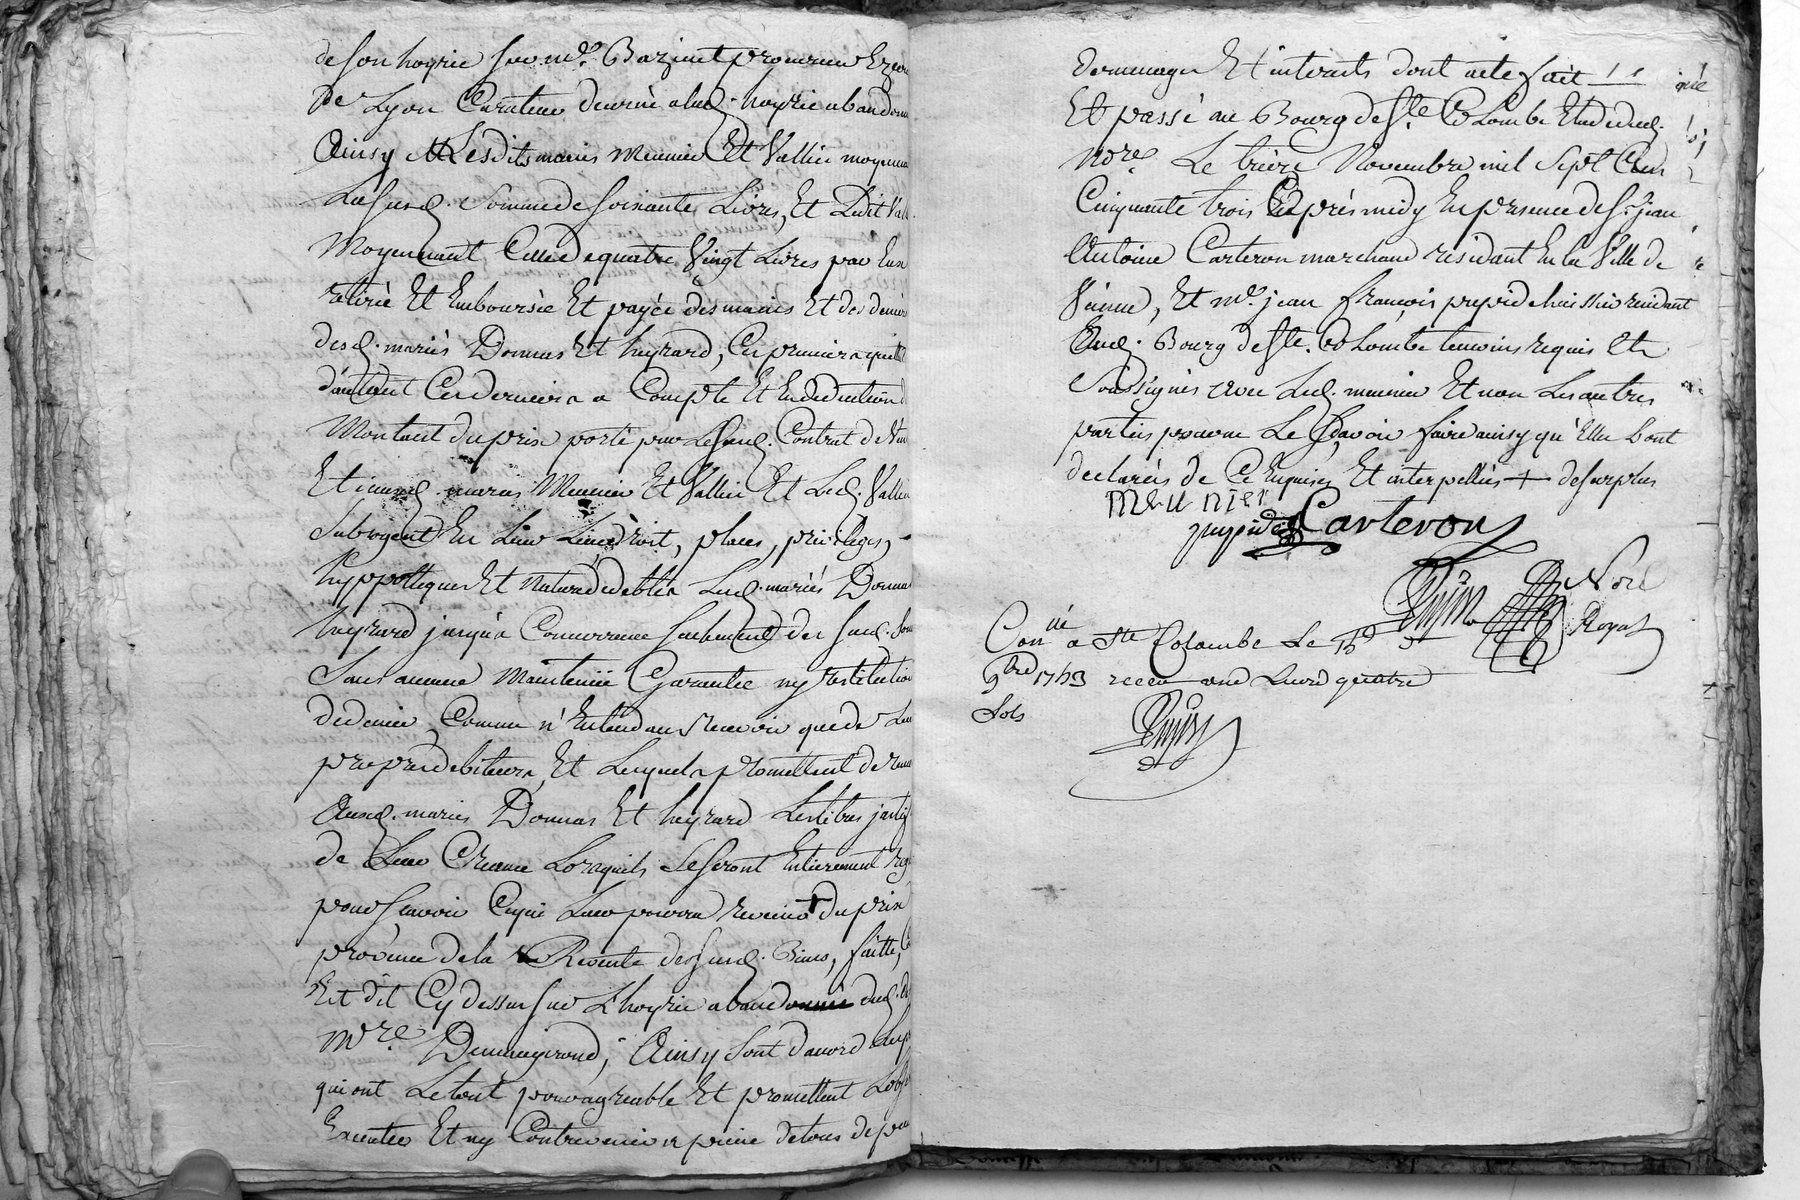 de son hoyrie sur me. Bazinet procureur Exer
De Lyon Curateur decerné alad. hoyrie abandonn
Ainsy Lesdits mariés Meunier Et Vallier moyenna
La susd. Somme de soixante Livres, Et Ledit Vall
Moyennant Celle de quatre Vingt Livres par Eux
retirée Et Emboursée Et payée des mains Et des denier
desd. mariés Donnas Et heyrard, Ces premiers quitt
d'autant Ces derniers a Compte Et En deduction d
Montant du prix porté par Le susd. Contrat de Ven
Et iceux d. mariés Meunier Et Vallier Et Led. Vallier
Subrogent En Leur Lieu droit, places, privileges,
hyppotteques Et nature de debtes Lesd. mariés Donnas
heyrard jusqu'a Concurrence seulement des susd. som
Sans aucune Maintenüe Garantie ny restitution
de denier, Comme n'Entendans recevoir que de Leu
propres debiteurs, Et Lesquels promettent de rem
Auxd. mariés Donnas Et heyrard Les titres justif
de Leur Creance Lorsquils Se seront Entierement
pour scavoir Ce qui Leur pourra revenir + du prix
provenu de la Revente des susd. Biens, faitte,
Est dit Cy dessus sur L'hoyrie abandonnée dud.
Mre. Demeugirond; Ainsy Sont d'acord Les p
qui ont Le tout pour agreable Et promettent L'obs
Executer Et ny Contrevenir a peine de tous depens
dommages Et interests dont acte fait
Et passé au Bourg de Ste. Colombe Etude dud.
nore. Le treize Novembre mil Sept Cens
Cinquante trois Après midy En presence de Sr. jean
Antoine Carteron marchand residant En la Ville de
Vienne, Et me. jean françois pupid huissier residant
Aud. Bourg de Ste. Colombe temoins requis Et
Soussignés avec Led. meunier Et non Les autres
parties pour ne Le Sçavoir faire ainsy qu'Elles L'ont
declarés de Ce Enquises Et interpellés + de surplus
Meunier
pupid Carteron
Dujon Nore
Royal
Conlé a Ste Colombe Le
9bre 1753 receu une Livre quatre
Sols
Dujon